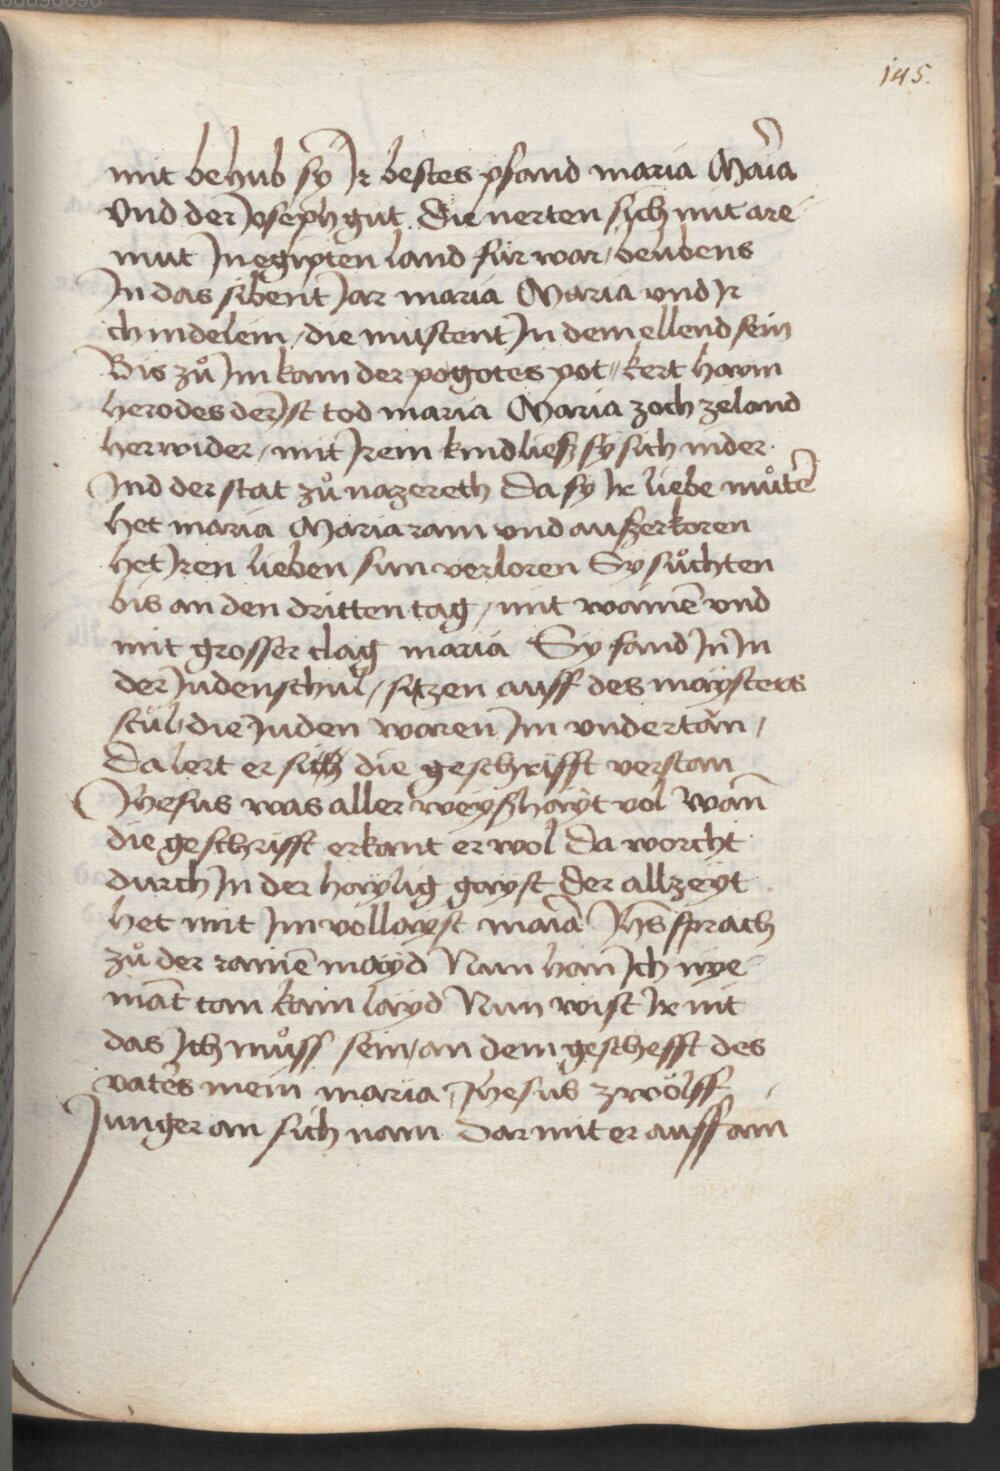 145.
mit behub sÿ Jr bestes pfand maria Maria
Vnd der Joseph gut. Die nerten sich mit are¬
mut Jn egipten land für war / beubens
Jn das sibent Jar maria Maria vnd Jr
chindelein / die mustent Jn dem ellend sein
Bis zů Jm kam der pogotes pot / kert haym
herodes der Jst tod maria Maria zoch ze land
herwider / mit Jrem kind ließ sÿ sich nider.
Jnd der stat zů nazereth Da sy Jr liebe můtẽ
het maria Maria rain vnd außerkoren
het Jren lieben sun verloren Sy sůchten
bis an den dritten tag / mit wainẽ vnd
mit grosser clag maria Sy fand Jn Jn
der Juden schůl / sitzen auff des maÿsters
stůl / die Juden waren Jm vndertan /
Da lert er sich die geschrifft verstan
Jhesus was aller weyßhayt vol wan̄
die geschrifft erkant er wol Da worcht
durch Jn der haylig gayst Der allzeyt
het mit Jm vollayst maia Jhs̄ sprach
zů der rainẽ mayd Nun han Jch nye¬
mat̄ tan kain layd Nun wist Jr nit
das Jch můss sein / an dem geschefft des
vaters mein maria Jhesus zwölff
Junger an sich nam Dar mit er auff am